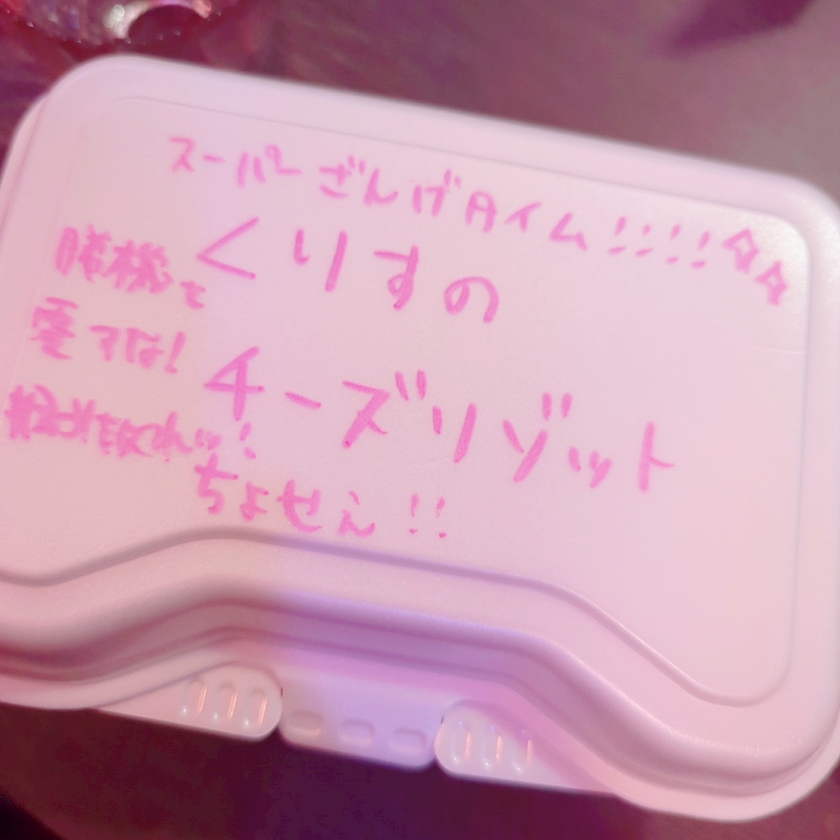 スーパーざんげタイム!!!!☆☆
くりすの
チーズリゾット
ちょせん!!
勝機を
零すな!